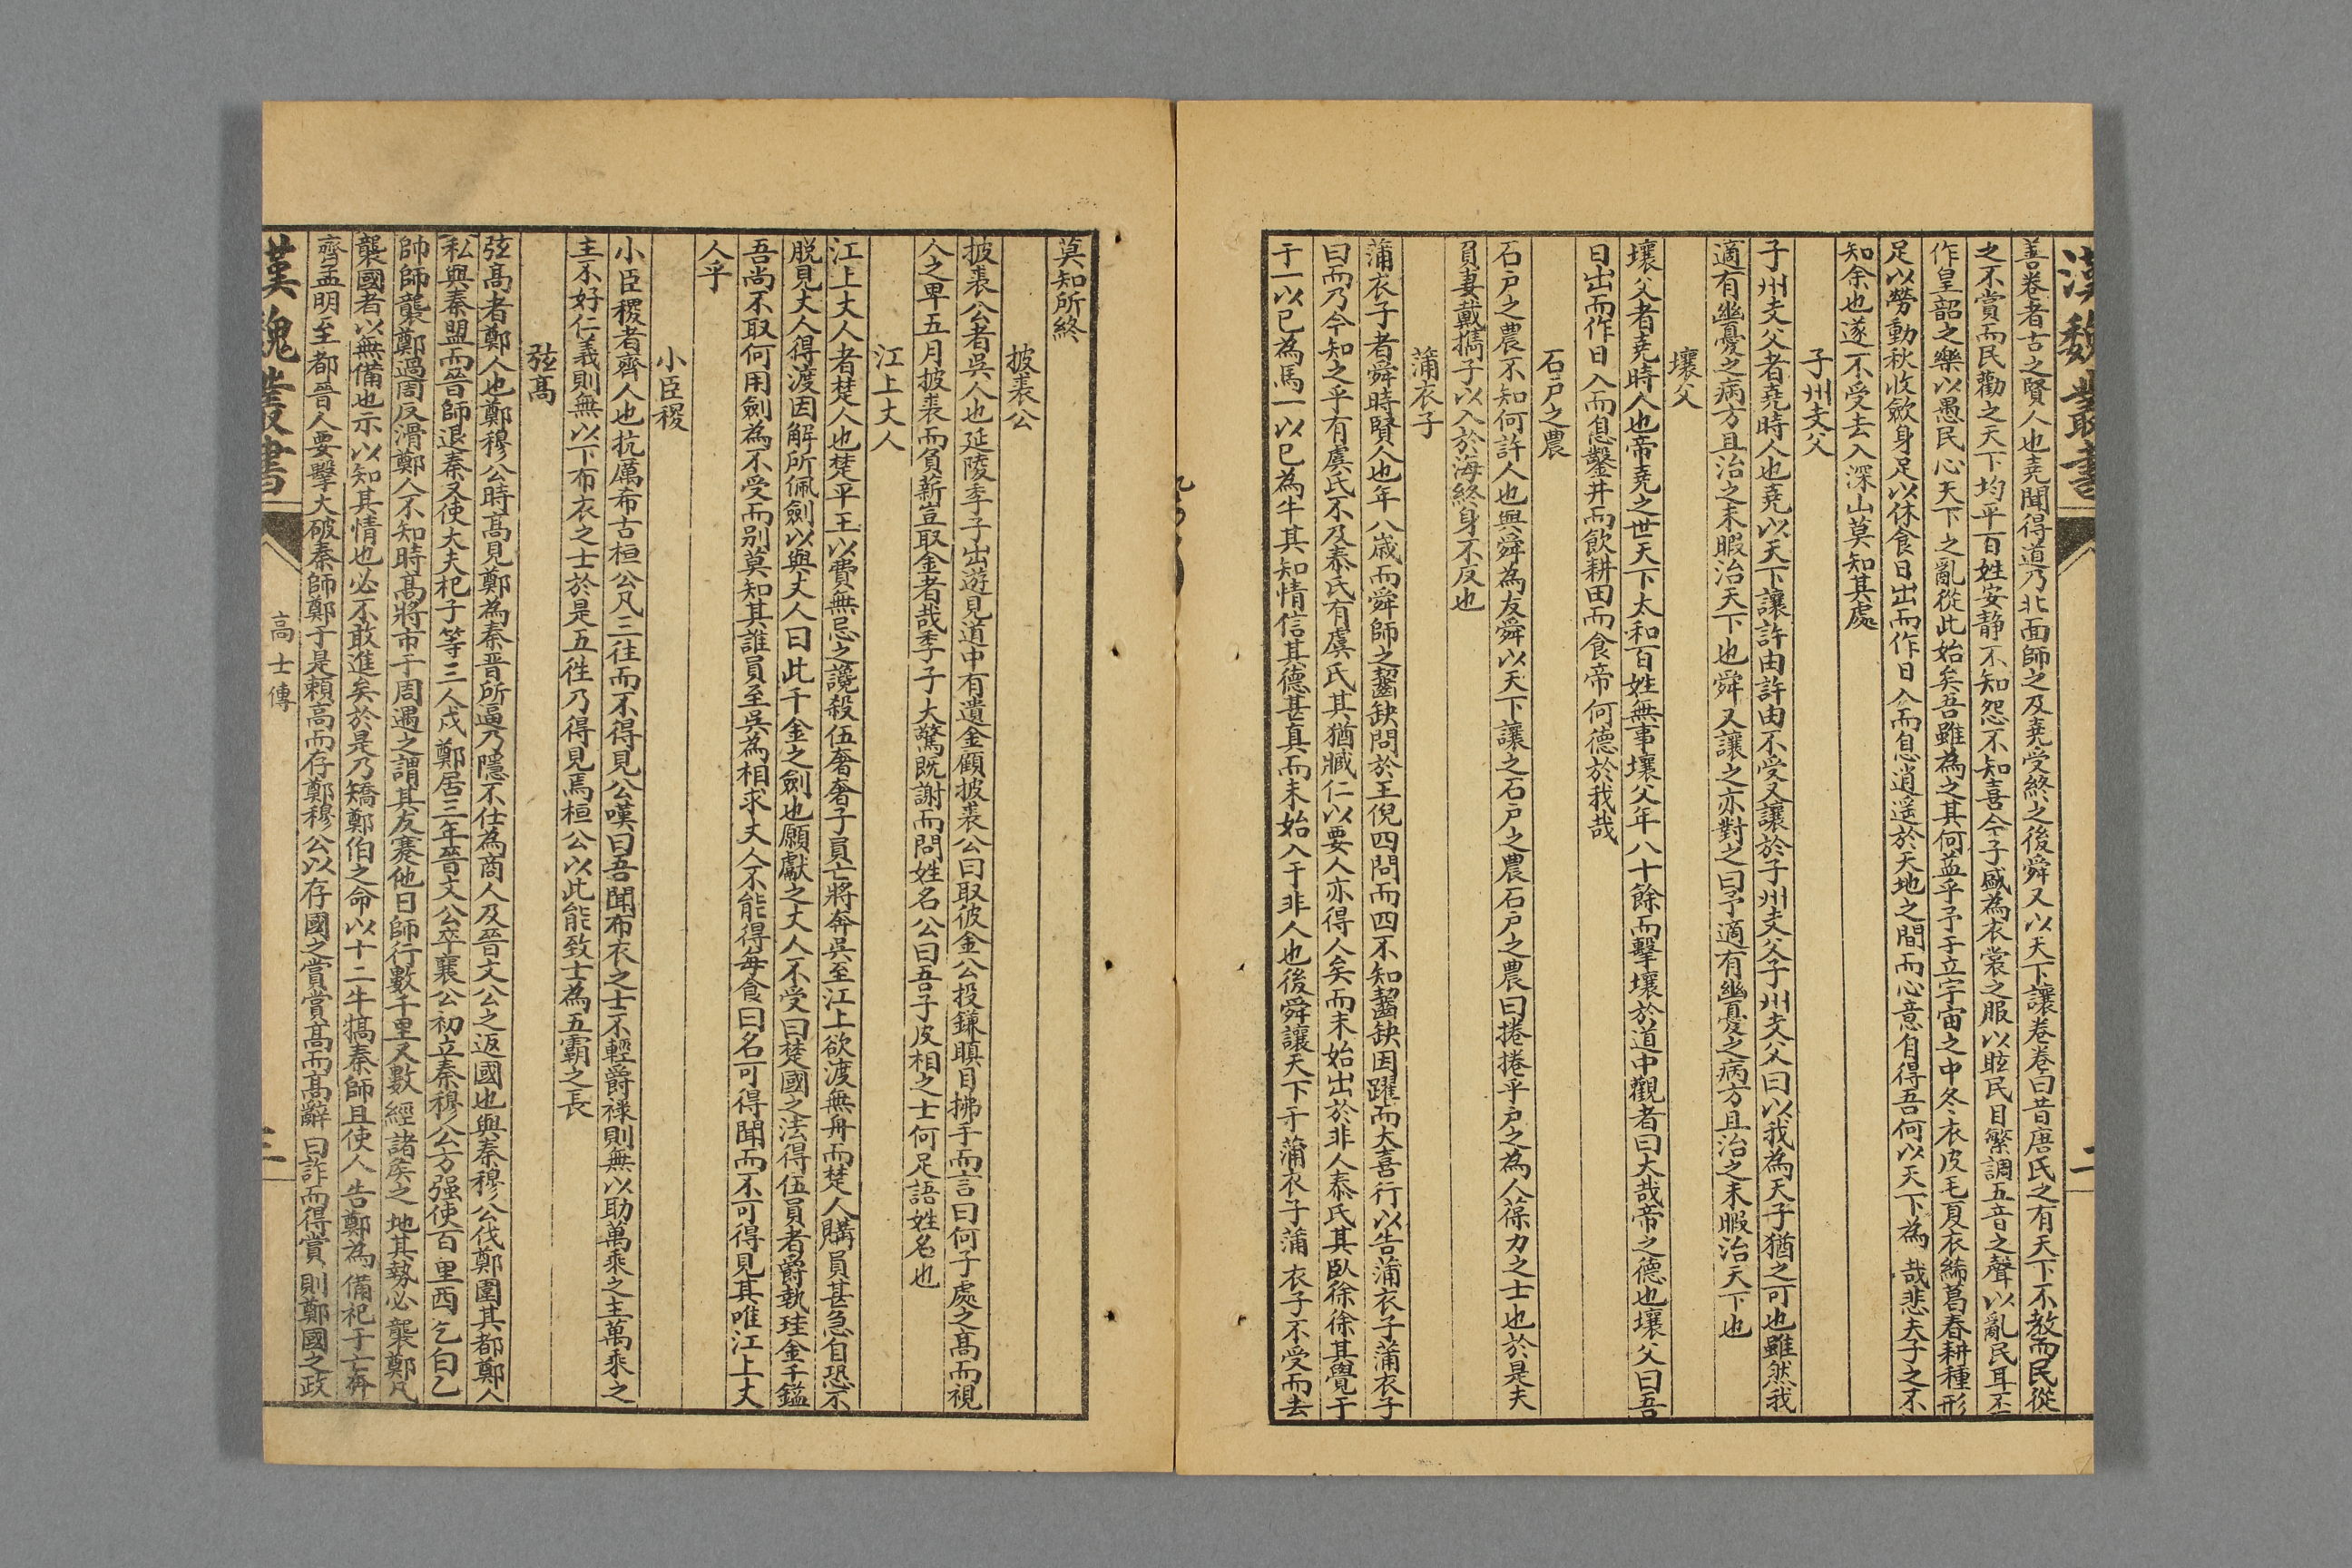 漢魏叢書
二
善卷者古之賢人也堯聞得道乃北面師之及堯受終之後舜又以天下讓卷卷曰昔唐氏之有天下不教而民從
之不賞而民勸之天下均平百姓安靜不知怨不知喜今子盛為衣裳之服以眩民目繁調五音之聲以亂民耳丕
作皇韶之樂以愚民心天下之亂從此始矣吾雖為之其何益乎予立宇宙之中冬衣皮毛夏衣絺葛春耕種形
足以勞動秋收歛身足以休食日出而作日入而息逍遥於天地之間而心意自得吾何以天下為哉悲夫子之不
知余也遂不受去入深山莫知其處
子州支父
子州支父者堯時人也堯以天下讓許由許由不受又讓於子州支父子州支父曰以我為天子猶之可也雖然我
適有幽憂之病方且治之未暇治天下也舜又讓之亦對之曰予適有幽憂之病方且治之未暇治天下也
壤父
壤父者堯時人也帝堯之世天下太和百姓無事壤父年八十餘而擊壤於道中觀者曰大哉帝之德也壤父曰吾
日出而作日入而息鑿井而飲耕田而食帝何德於我哉
石戶之農
石戶之農不知何許人也與舜為友舜以天下讓之石戶之農石戶之農曰捲捲乎戶之為人葆力之士也於是夫
負妻戴擕子以入於海終身不反也
蒲衣子
蒲衣子者舜時賢人也年八歲而舜師之齧缺問於王倪四問而四不知齧缺因躍而大喜行以告蒲衣子蒲衣子
曰而乃今知之乎有虞氏不及泰氏有虞氏其猶臧仁以要人亦得人矣而未始出於非人泰氏其臥徐徐其覺于
于一以已為馬一以已為牛其知情信其德甚真而未始入于非人也後舜讓天下于蒲衣子蒲衣子不受而去
莫知所終
披裘公
披裘公者吳人也延陵季子出遊見道中有遺金顧披裘公曰取彼金公投鎌瞋目拂手而言曰何子處之髙而視
人之卑五月披裘而負薪豈取金者哉季子大驚既謝而問姓名公曰吾子皮相之士何足語姓名也
江上丈人
江上丈人者楚人也楚平王以費無忌之讒殺伍奢奢子員亡將奔吳至江上欲渡無舟而楚人購員甚急自恐不
脫見丈人得渡因解所佩劍以與丈人曰此千金之劍也願獻之丈人不受曰楚國之法得伍員者爵執珪金千鎰
吾尚不取何用劍為不受而別莫知其誰員至吳為相求丈人不能得每食曰名可得聞而不可得見其唯江上丈
人乎
小臣稷
小臣稷者齊人也抗厲希古桓公凡三往而不得見公嘆曰吾聞布衣之士不輕爵禄則無以助萬乘之主萬乘之
主不好仁義則無以下布衣之士於是五徃乃得見焉桓公以此能致士為五霸之長
弦髙
弦髙者鄭人也鄭穆公時髙見鄭為秦晋所逼乃隱不仕為商人及晉文公之返國也與秦穆公伐鄭圍其都鄭人
私與秦盟而晉師退秦又使大夫杞子等三人戍鄭居三年晉文公卒襄公初立秦穆公方强使百里西乞白乙
帥師襲鄭過周反滑鄭人不知時髙將市于周遇之謂其友蹇他曰師行數千里又數經諸矦之地其勢必襲鄭凡
襲國者以無備也示以知其情也必不敢進矣於是乃矯鄭伯之命以十二牛犒秦師且使人告鄭為備杞子亡奔
齊孟明至都晉人要擊大破秦師鄭于是賴高而存鄭穆公以存國之賞賞髙而髙辭曰詐而得賞則鄭國之政
漢魏叢書
高士傳
三